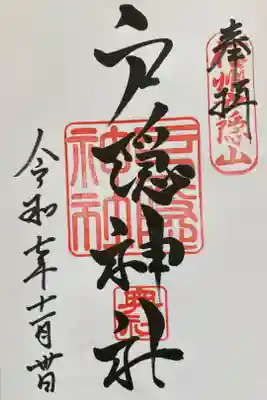 奉拝
信州戸隠山
戸隠神社
戸隠神社
奥社
令和七年十一月廿日